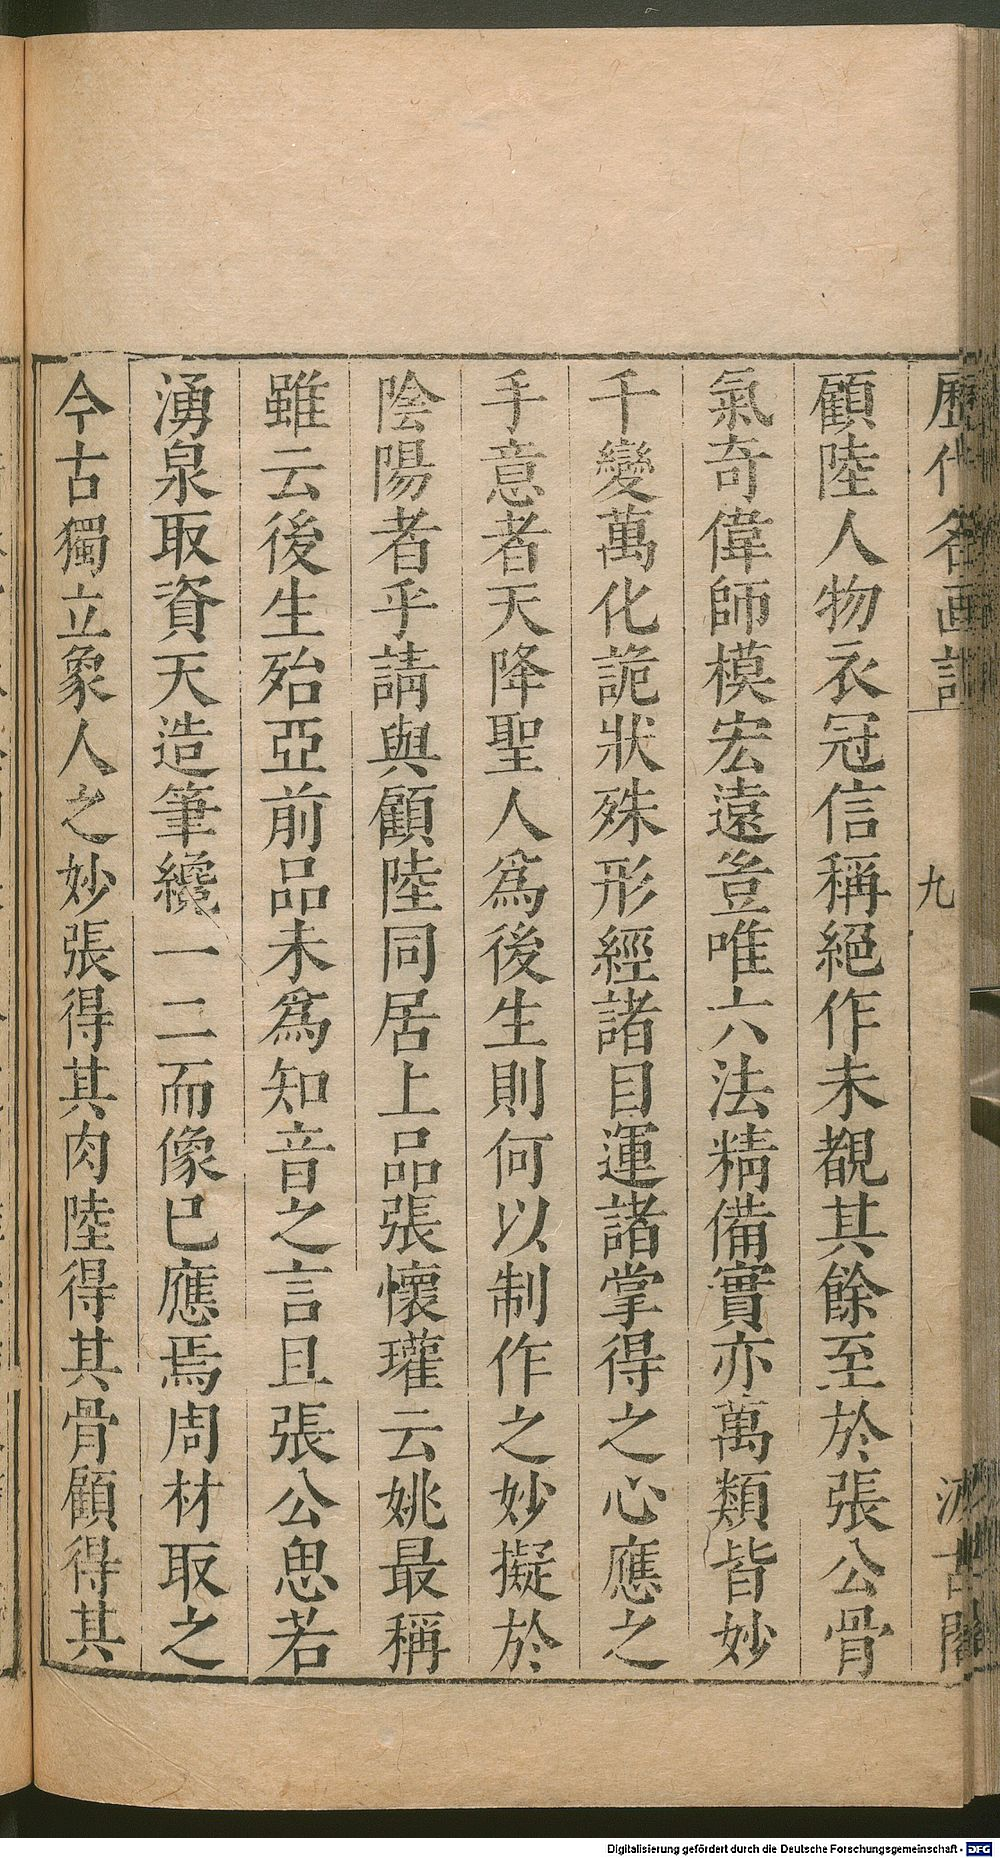 歷代名画記
九
汲古閣
顧陸人物衣冠信稱絕作未覩其餘至於張公骨
氣奇偉師模宏遠豈唯六法精備實亦萬類皆妙
千變萬化詭狀殊形經諸目運諸掌得之心應之
手意者天降聖人爲後生則何以制作之妙擬於
陰陽者乎請與顧陸同居上品張懷瓘云姚最稱
雖云後生殆亞前品未爲知音之言且張公思若
湧泉取資天造筆纔一二而像已應焉周材取之
今古獨立象人之妙張得其肉陸得其骨顧得其
Digitalisierung gefördert durch die Deutsche Forschungsgemeinschaft - DFG